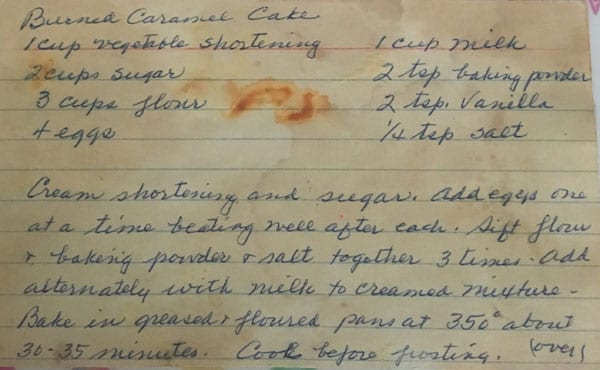 Burned Caramel Cake
1 cup vegetable shortening 1 cup milk
2 cups sugar 2 tsp baking powder
3 cups flour 2 tsp. Vanilla
4 eggs 1/4 tsp salt
Cream shortening and sugar. Add eggs one
at a time beating well after each. Sift flour
+ baking powder + salt together 3 times. Add
alternately with milk to creamed mixture-
Bake in greased + floured pans at 350° about
30-35 minutes. Cool before frosting. (over)